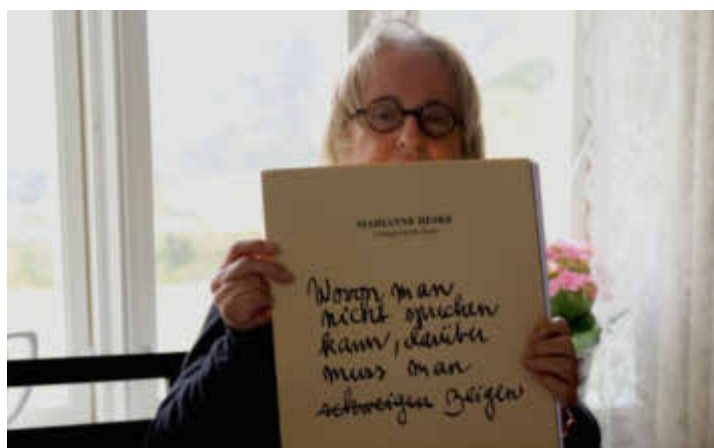 MARIANNE HESKE
Wovon man
nicht sprechen
kann, darüber
muss man
schweigen zeigen